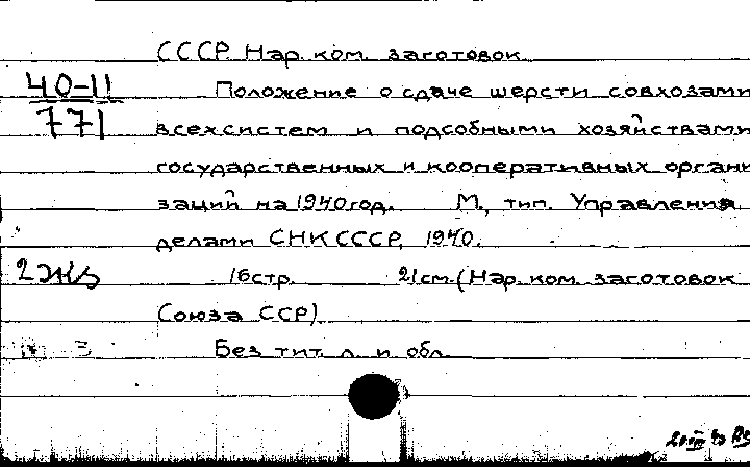 СССР. Нар. ком. заготовок
40-11
771
Положение о сдаче шерсти совхозами
всех систем и подсобными хозяйствами
государственных и кооперативных органи
заций на 1940 год. М., тип. Управления
делами СНК СССР, 1940.
2 экз
16 стр. 21 см. (Нар. ком. заготовок
Союза ССР)
Без тит. л. и обл.